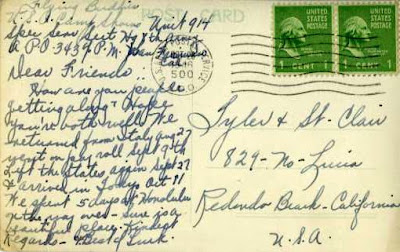 Flying Buddies
U.S.O. Camp Shows Unit #914
Spec Serv Sect Hq 8th Army
A P.O 343 % P.M. San Francisco
Cal.
POST CARD
UNITED STATES POSTAGE
1 CENT 1
UNITED STATES POSTAGE
1 CENT 1
500
Dear Friends..
How are you people
getting along? Hope
you're both well. We
returned from Italy Aug 27
went on pay roll Sept 9th
Left the States again Sept 27
& arrived in Tokyo Oct-11
We spent 5 days at Honolulu
on the way over - sure is a
beautiful place. Kindest
Regards - & Best of Luck.
Tyler & St. Clair
829 - No - Lucia
Redondo Beach - California
U.S.A.